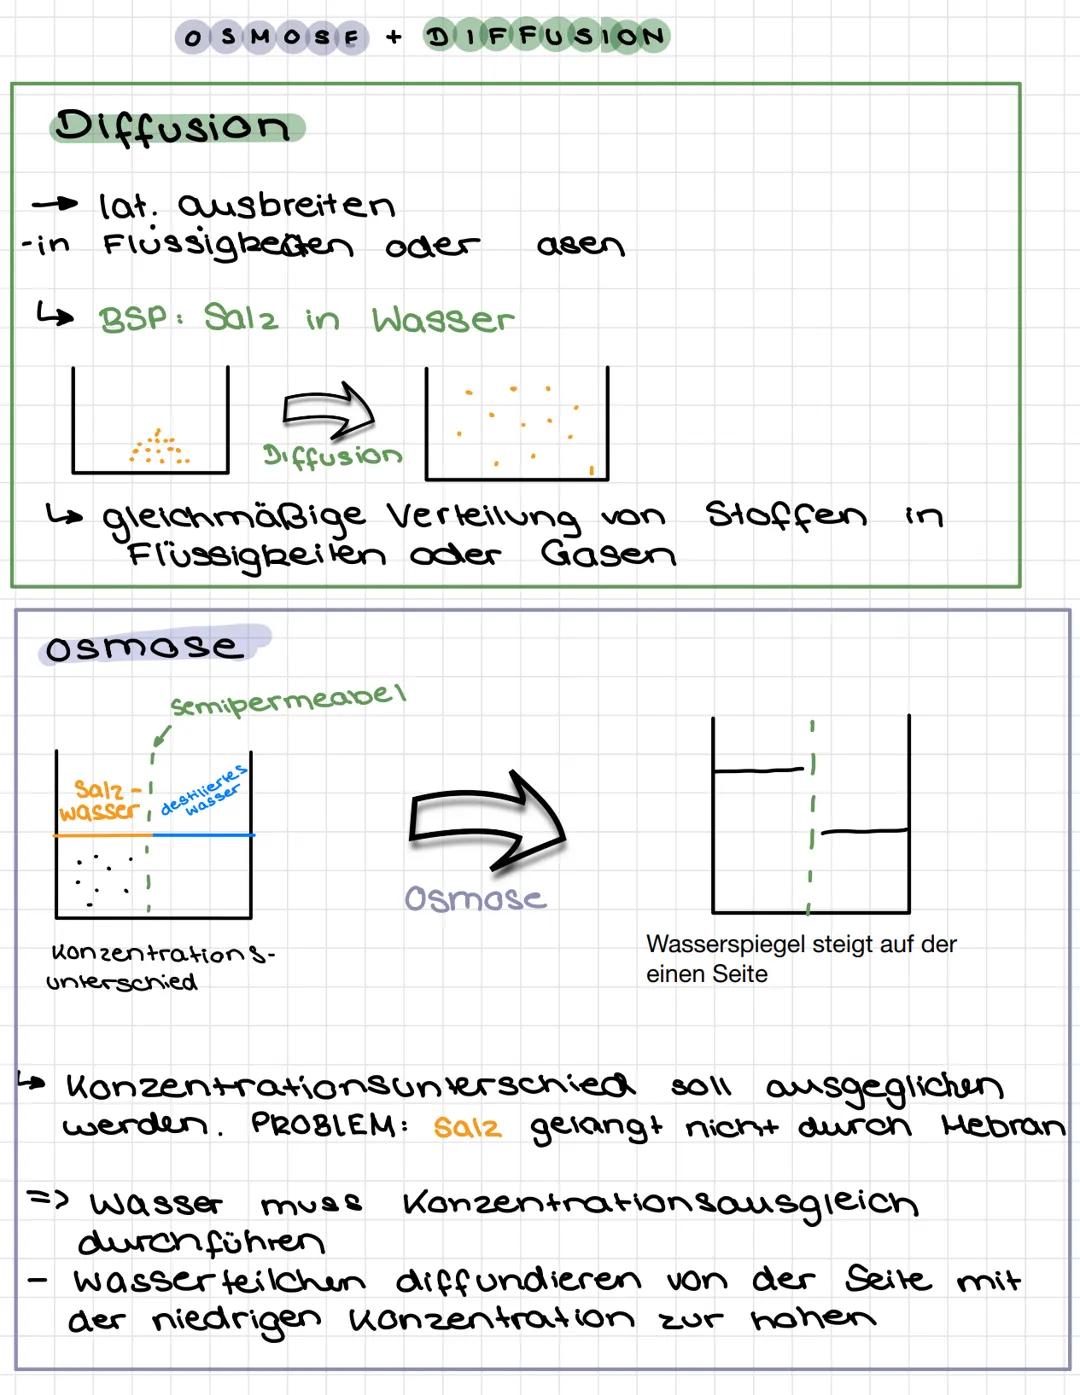 OSMOSE + DIFFUSION
Diffusion
→ lat. ausbreiten
-in Flüssigkeiten oder asen
↳ BSP: Salz in Wasser
Diffusion
↳ gleichmäßige Verteilung von Stoffen in
Flüssigkeiten oder Gasen
osmose
semipermeabel
Salz-
wasser
destilliertes
wasser
Osmose
Konzentrations-
unterschied
Wasserspiegel steigt auf der
einen Seite
↳ Konzentrationsunterschied soll ausgeglichen
werden. PROBLEM: Salz gelangt nicht durch Mebran
=> Wasser muss Konzentrationsausgleich
durchführen
- Wasserteilchen diffundieren von der Seite mit
der niedrigen Konzentration zur hohen